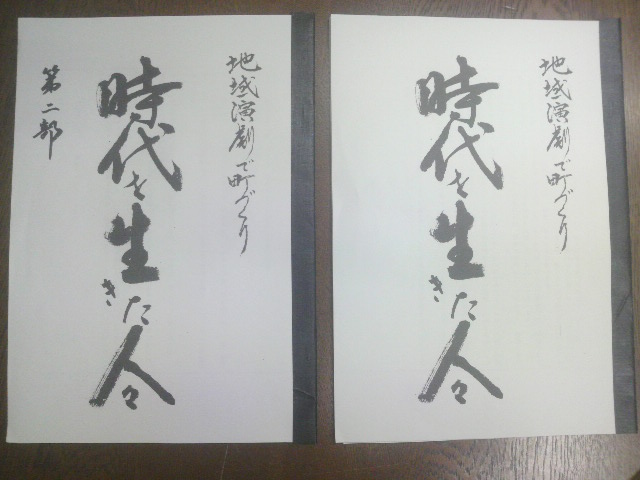 地域演劇で町づくり
時代を生きた人々
第二部
地域演劇で町づくり
時代を生きた人々